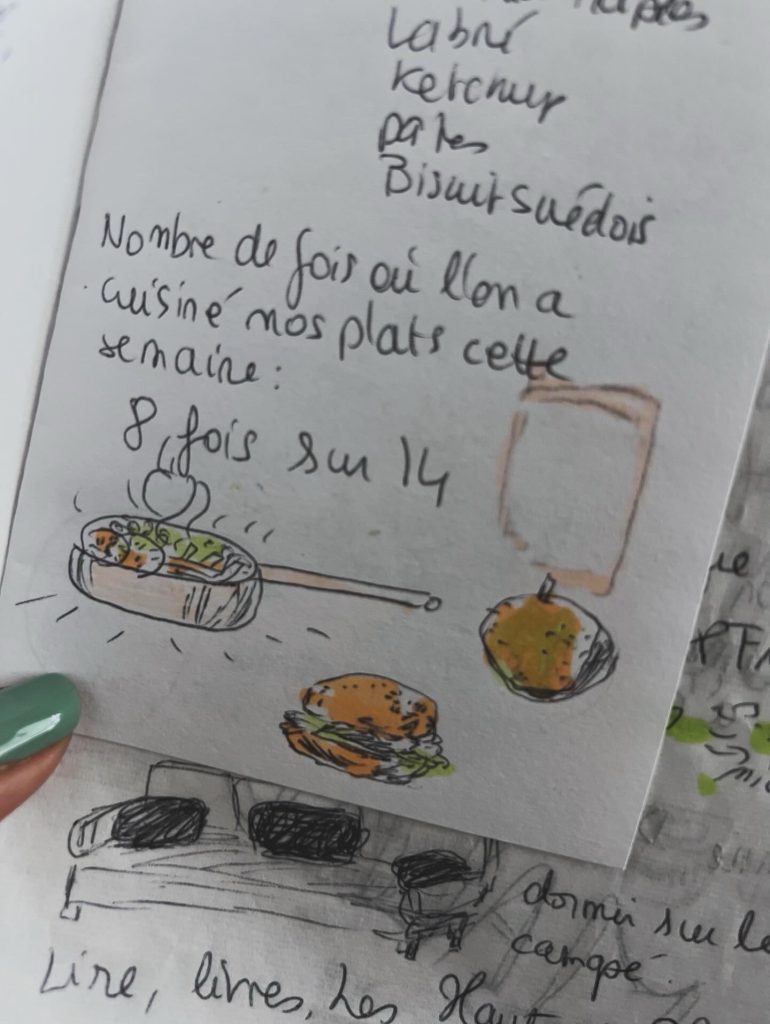 Labné
Ketchup
pates
Biscuit suédois
Nombre de fois où l'on a
cuisiné nos plats cette
semaine :
8 fois sur 14
dormir sur le
canapé.
Lire, livres, Les Haut